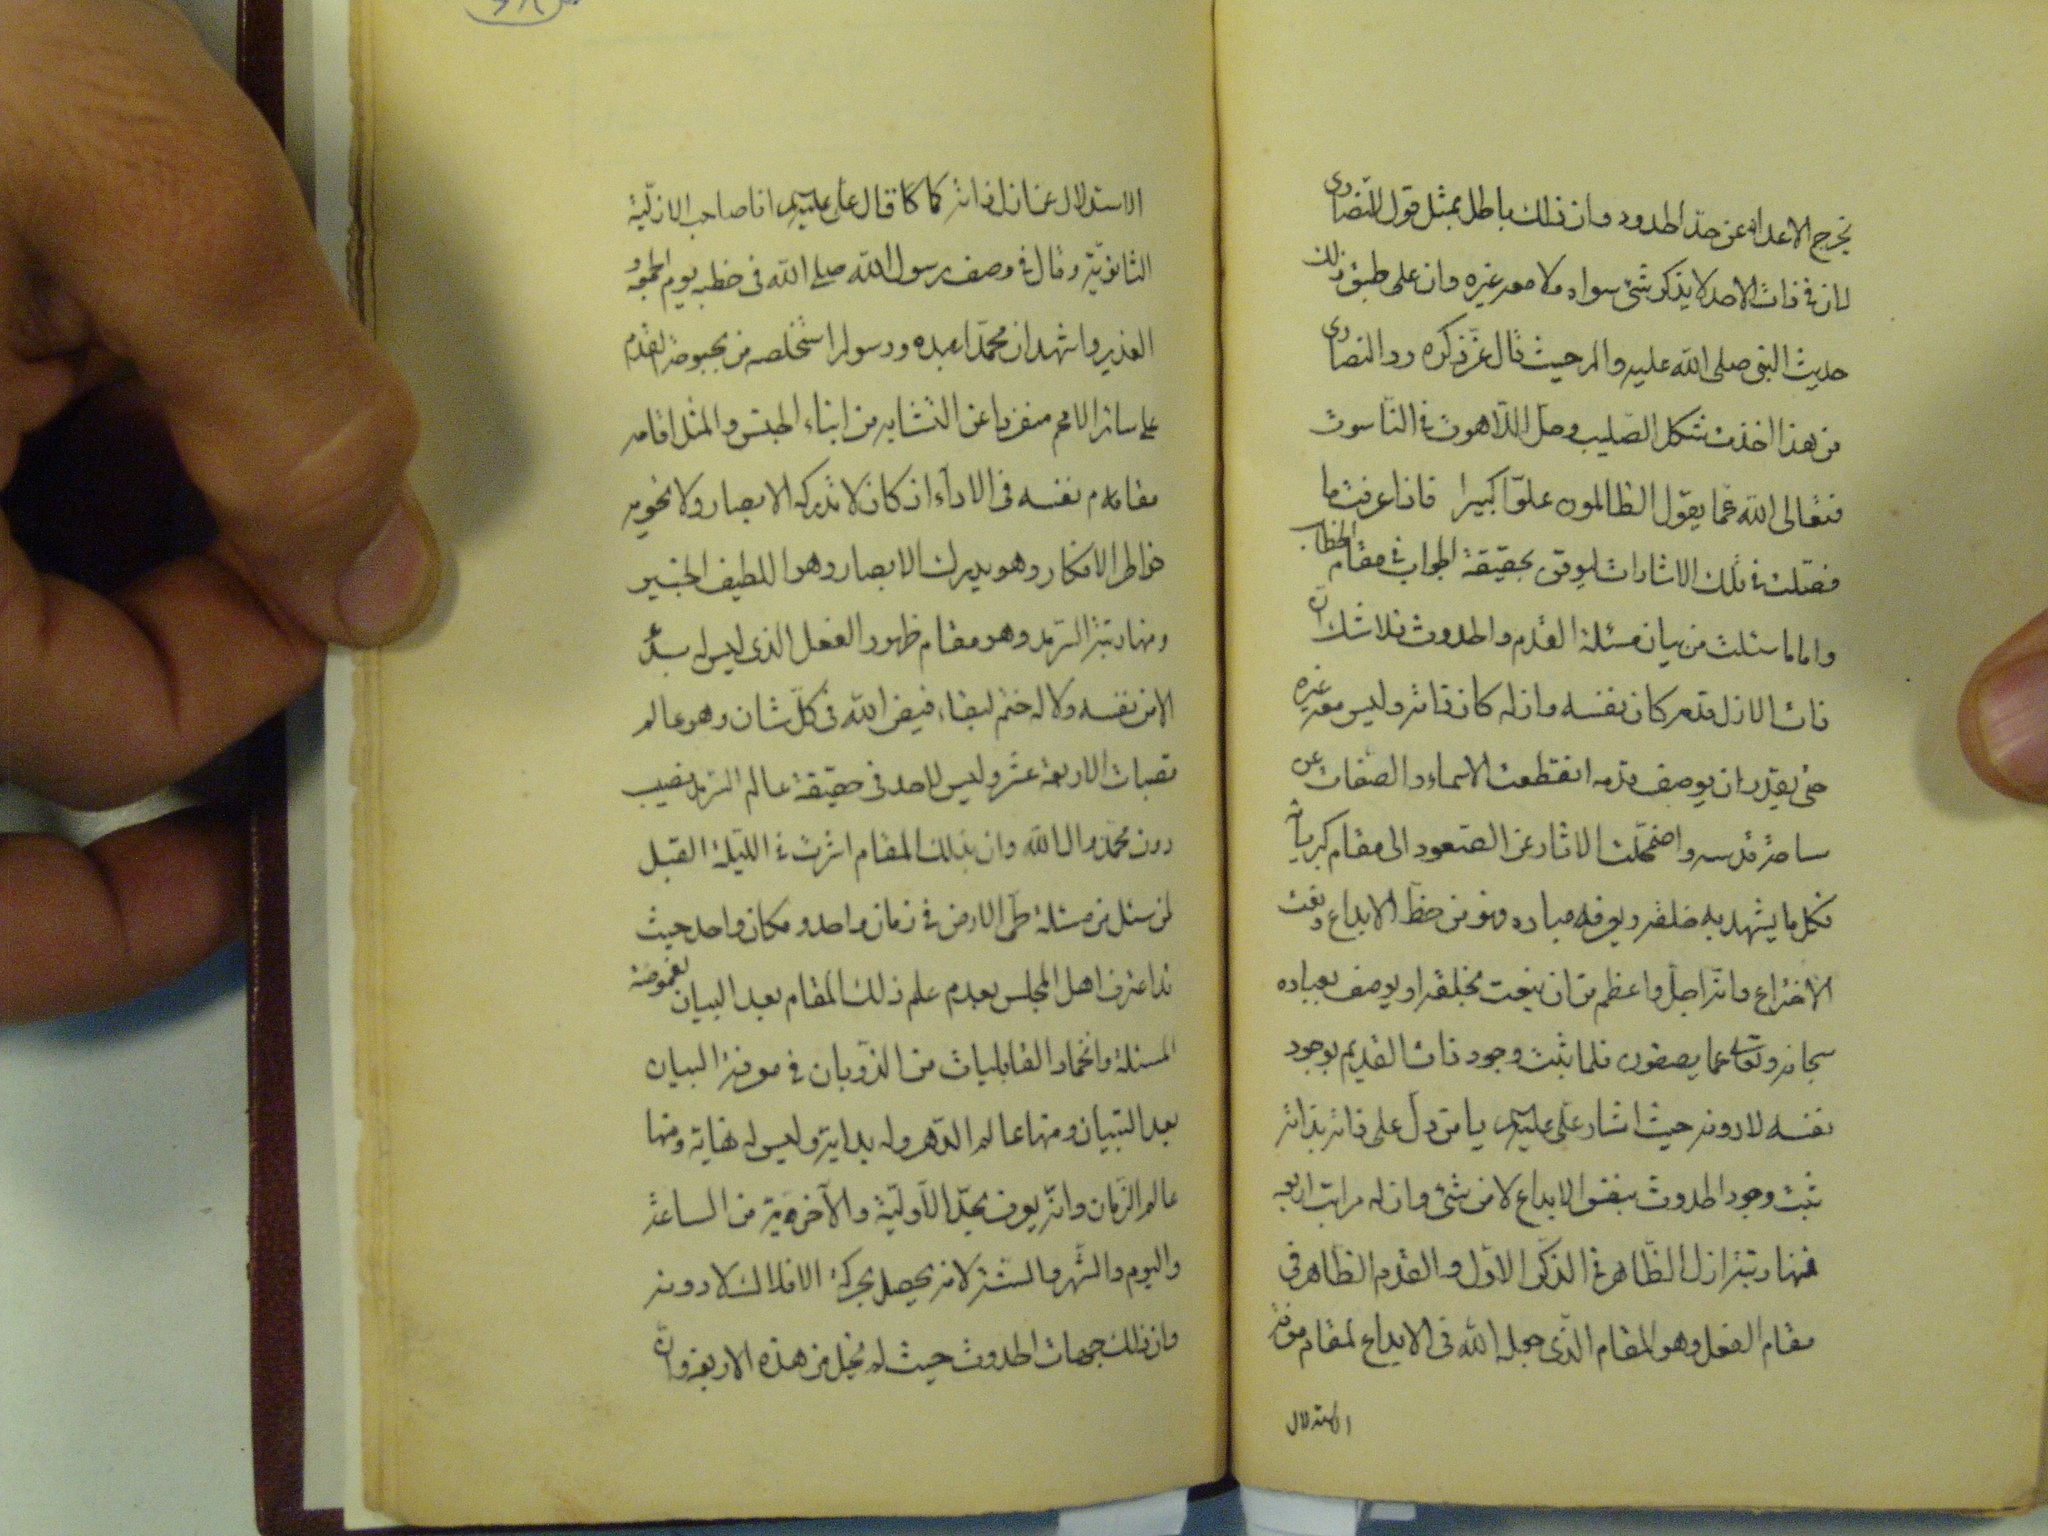 يخرج الاعداد عن حدّ الحدود وان ذلك باطل بمثل قول النصارى
لان في ذات الاحد لا يذكر شئ سواه ولا معه غيره وان على طبق ذلك
حديث النبي صلى الله عليه واله حيث قال عز ذكره رد النصارى
من هذا اخذت شكل الصّليب وحلّ اللّاهوت في النّاسوت
فتعالى الله عمّا يقول الظالمون علوّا كبيرا فاذا عرفت ما
فصّلت في تلك الاشارات ليوقن بحقيقة الجواب في مقام الخطاب
واما ما سئلت من بيان مسئلة القدم والحدوث فلا شك انّ
ذات الازل قدمه كان نفسه وازله كان ذاته وليس معه غيره
حتى يقدر ان يوصف قدمه انقطعت الاسماء والصّفات عن
ساحة قدسه واضمحلت الاثار عن الصّعود الى مقام كبريائه
فكل ما يشهد به خلقه ويعرفه عباده وهو من حظّ الابداع ونعت
الاختراع وانّه اجلّ واعظم من ان ينعت بخلقه او يوصف بعباده
سبحانه وتعالى عما يصفون فلما ثبت وجود ذات القديم بوجود
نفسه لا دونه حيث اشار علي عليه السلم يا من دلّ على ذاته بذاته
ثبت وجود الحدوث بنفس الابداع لا من شئ وان له مراتب اربعه
فمنها رتبة ازل الظّاهر في الذّكر الاوّل والقدم الظّاهر في
مقام الفعل وهو المقام الّذي جعله الله في الابداع لمقام معرفة
الاستدلال
الاستدلال عن ازل ذاته كما قال علي عليه السلم انا صاحب الازليّة
الثانويّة وقال في وصف رسول الله صلى الله في خطبه يوم الجمعة و
الغدير واشهد ان محمّدا عبده ورسوله استخلصه من بحبوحة القدم
على سائر الامم منفردا عن التّشابه من ابناء الجنس والمثل اقامه
مقامه نفسه في الاداء اذ كان لا تدركه الابصار ولا تحويه
خواطر الافكار وهو يدرك الابصار وهو اللطيف الخبير
ومنها رتبة السّرمد وهو مقام ظهور الفعل الذي ليس له بدء
الا من نفسه ولا له ختم لبقاء فيض الله في كلّ شان وهو عالم
قصبات الاربعة عشر وليس لاحد في حقيقة عالم السّرمد نصيب
دون محمّد وال الله وان بذلك المقام اشرت في الليلة القبل
لمن سئل من مسئلة طيّ الارض في زمان واحد ومكان واحد حيث
قد اعترف اهل المجلس بعدم علم ذلك المقام بعد البيان لغموضة
المسئلة وانجماد القابليات من الذّوبان في معرفة البيان
بعد التبيان ومنها عالم الدّهر وله بداية وليس له نهاية ومنها
عالم الزّمان وانّه يعرف بحدّ الاوليّة والآخريّة من الساعة
واليوم والشّهر والسّنة لانه يحصل بحركة الافلاك لا دونه
وان ذلك جهات الحدوث حيث لم يخل من هذه الاربعة وانّ